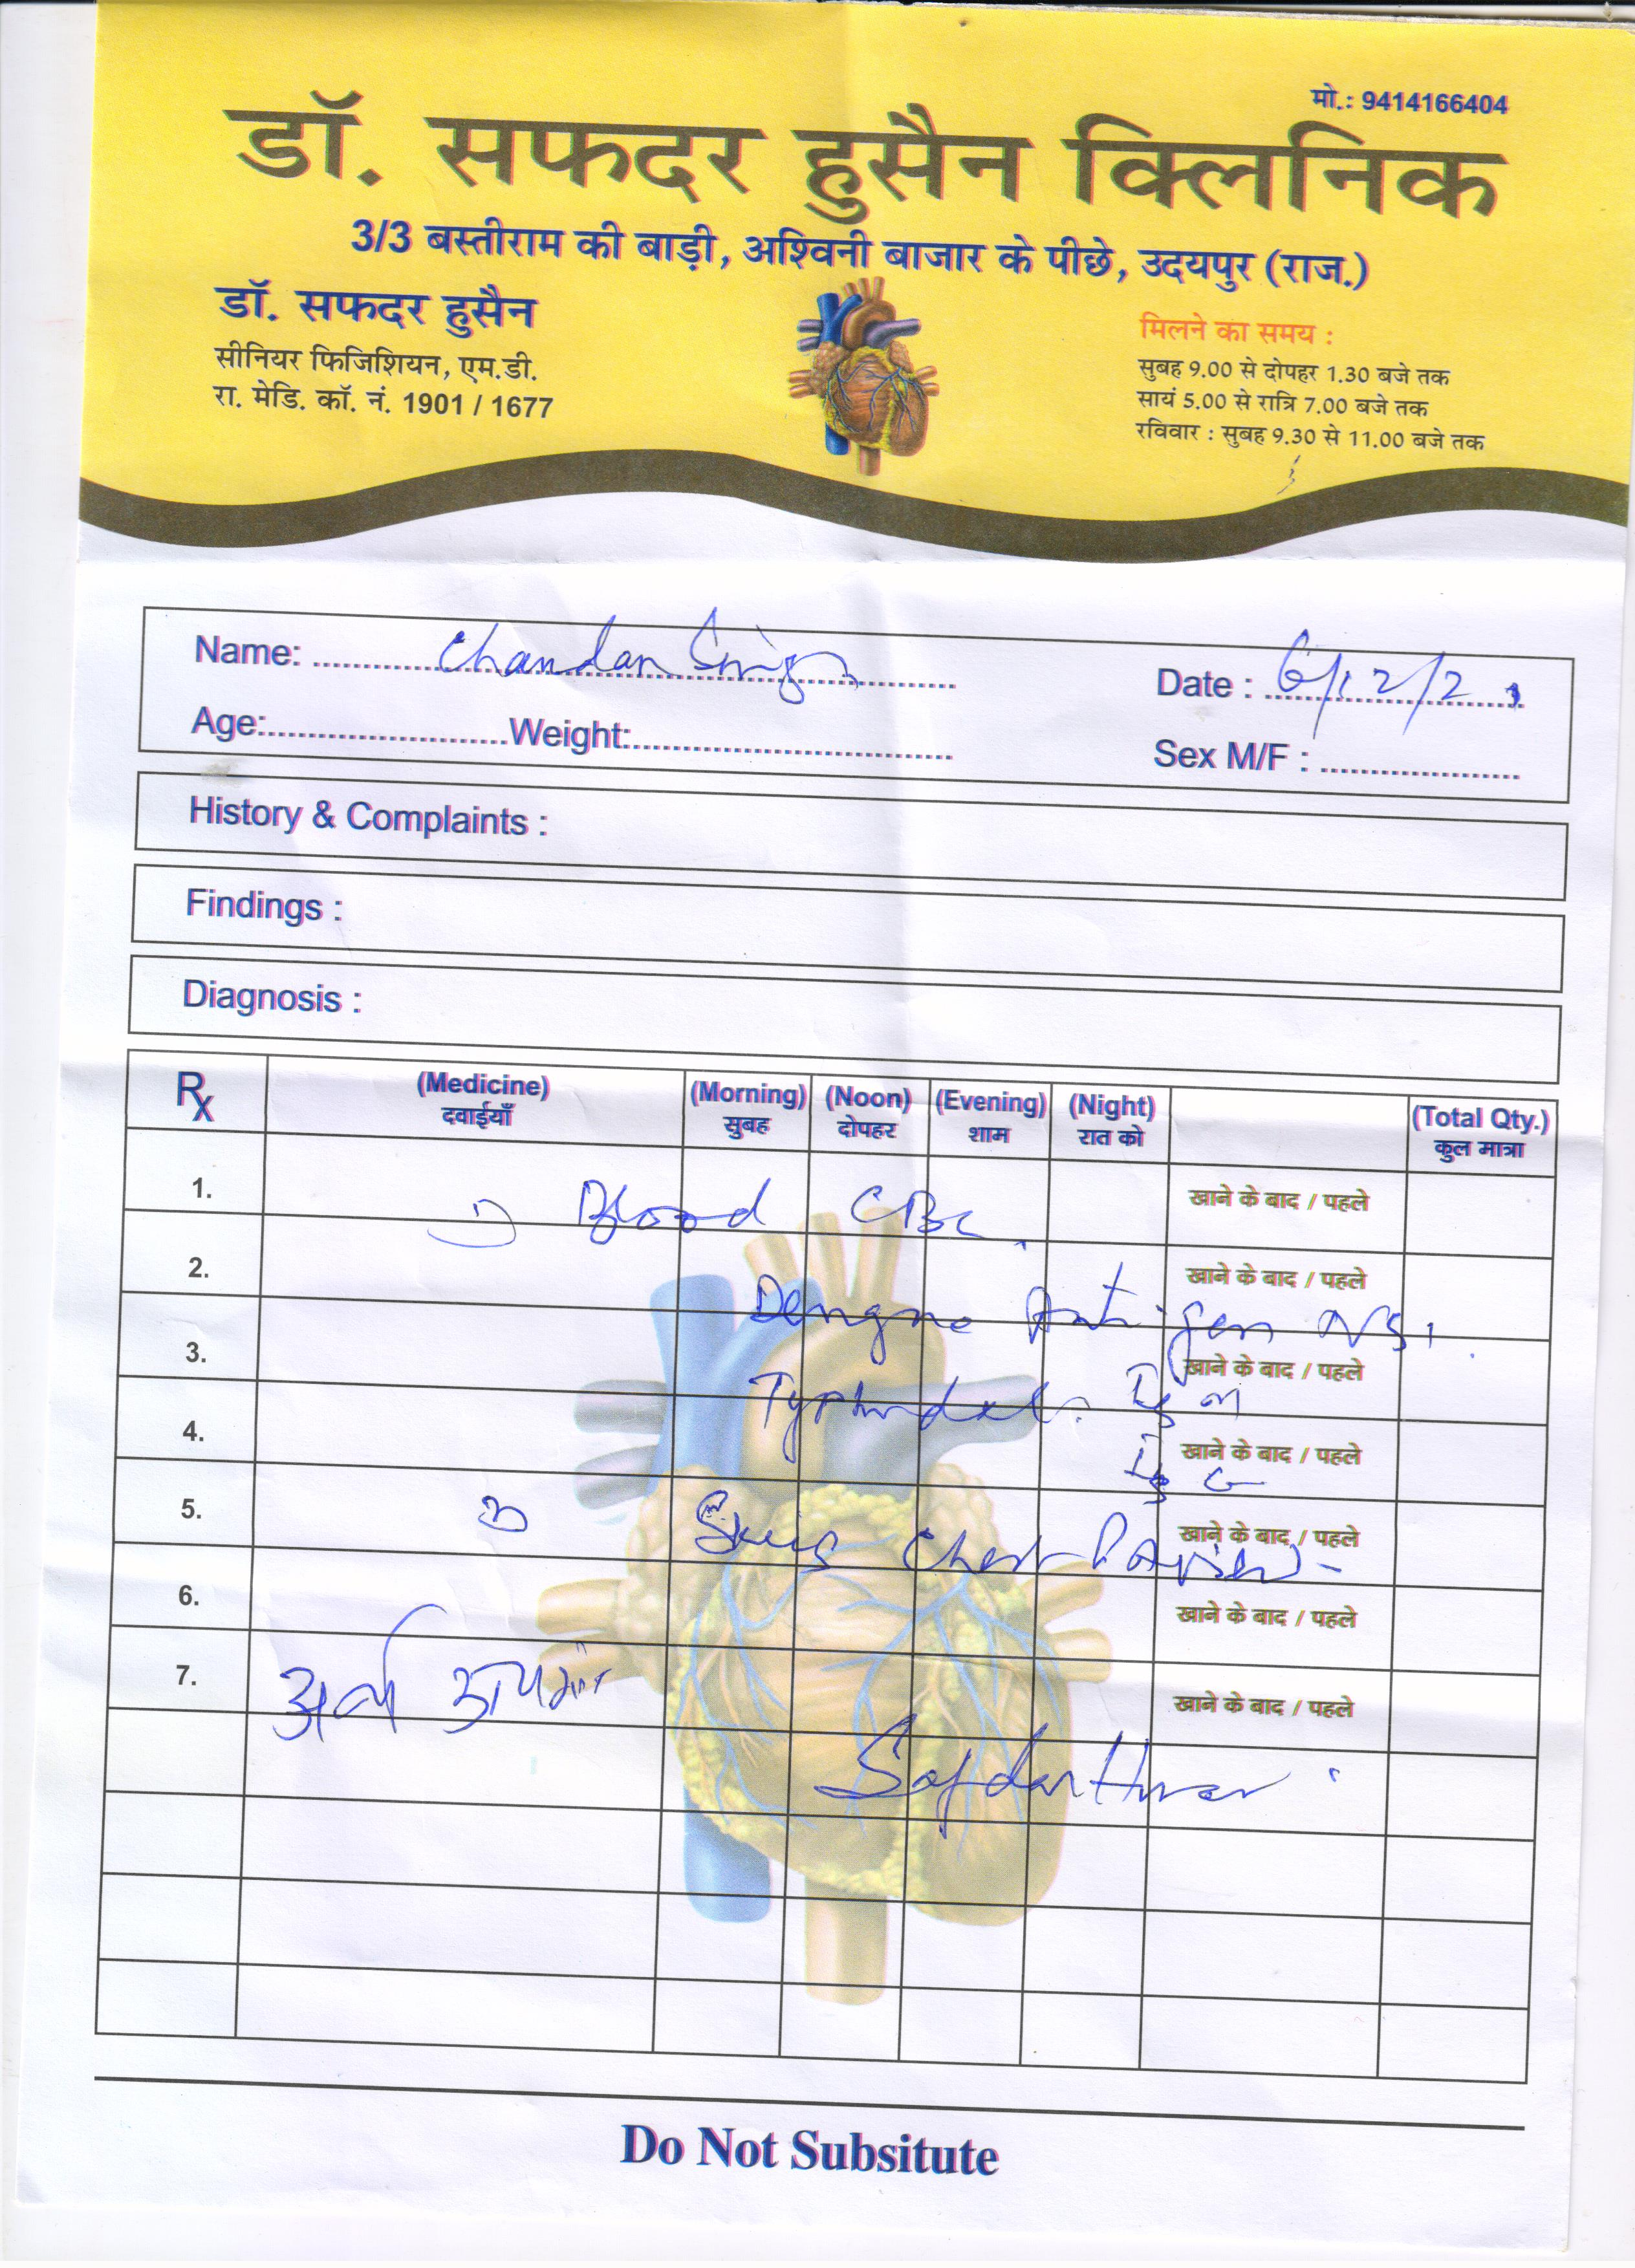 मो.: 9414166404
डॉ. सफदर हुसैन क्लिनिक
3/3 बस्तीराम की बाड़ी, अश्विनी बाजार के पीछे, उदयपुर (राज.)
डॉ. सफदर हुसैन
सीनियर फिजिशियन, एम.डी.
रा. मेडि. कॉ. नं. 1901 / 1677
मिलने का समय :
सुबह 9.00 से दोपहर 1.30 बजे तक
सायं 5.00 से रात्रि 7.00 बजे तक
रविवार : सुबह 9.30 से 11.00 बजे तक
Name: Chandan Singh Date : 6/12/2
Age: Weight: Sex M/F :
History & Complaints :
Findings :
Diagnosis :
Rx (Medicine) (Morning) (Noon) (Evening) (Night) (Total Qty.)
दवाईयाँ सुबह दोपहर शाम रात को कुल मात्रा
1. Blood CBC खाने के बाद / पहले
2. खाने के बाद / पहले
Dengue Antigen NS1
3. खाने के बाद / पहले
Typhidot IgM
4. खाने के बाद / पहले
IgG
5. Chest खाने के बाद / पहले
6. खाने के बाद / पहले
7. खाने के बाद / पहले
Safdar Hussain
Do Not Subsitute